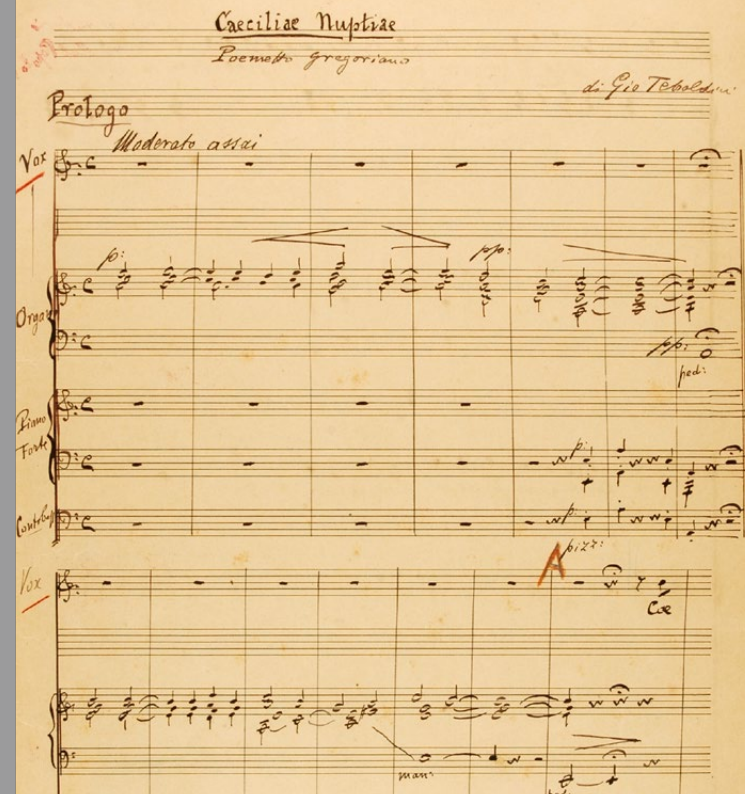 Caeciliae Nuptiae
Poemetto gregoriano
di Gio Tebaldini
Prologo
Moderato assai
Vox
p:
pp:
Organ
pp:
ped:
Piano
Forte
p:
Contrab
p:
pizz:
A
Vox
Coe
man: